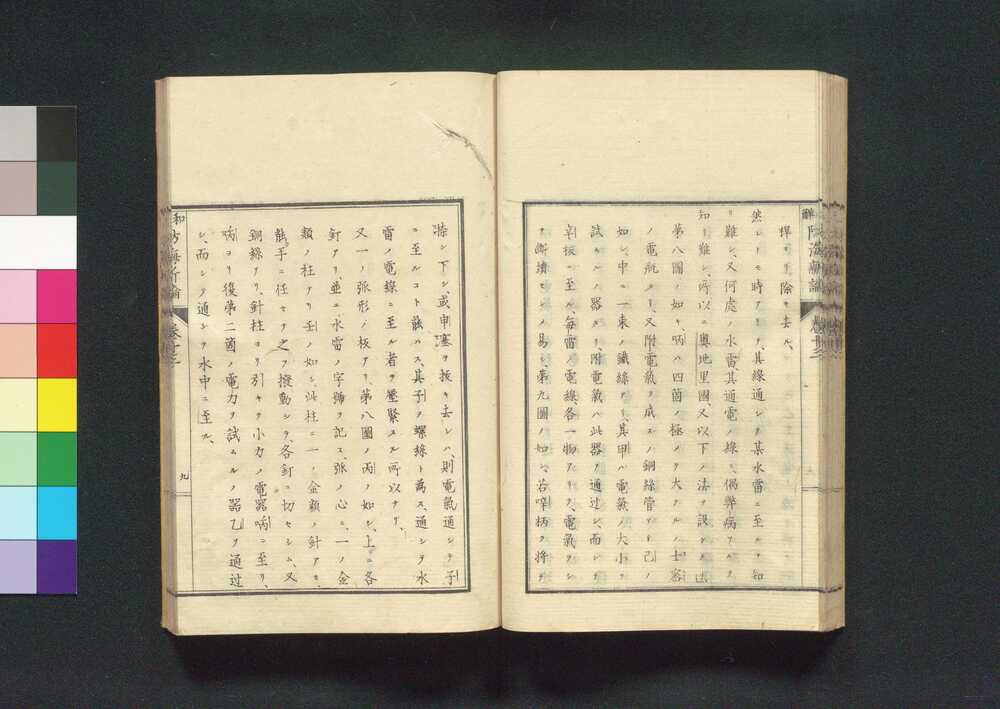 桿ヲリ除キ去ル、
然レトモ時アリテ、其線通シテ某水雷ニ至ルヲ知
リ難シ、又何處ノ水雷、其通電ノ線ニ、偶弊病アルヲ
知リ難シ、所以ニ奥地里國、又以下ノ法ヲ設ク、其法
第八圖ノ如ク、丙ハ四箇ノ極メテ大ナル
ノ電瓶ナリ、又附電氣ヲ成スノ銅絲管アリ、己ノ
如シ、中ニ一束ノ鐵線アリ、其甲ハ電氣ノ大小ヲ
試ムルノ器ナリ、附電氣ハ此器ヲ通過シ、而シテ
ニ至ル、毎雷ノ電線、各一物アリテ、電氣ヲシ
テ斷續セシメ易シ、第九圖ノ如シ、若啐柄ヲ將テ
捺シ下シ、或申塞ヲ拔キ去レハ、則電氣通シテ子
ニ至ルコト能ハス、其子ヲ螺絲ト為ス、通シテ水
雷ノ電線ニ至ル者ヲ壓緊スル所以ナリ、
又一ノ弧形ノ板アリ、第八圖ノ丙ノ如シ、上ニ各
釘アリ、並ニ水雷ノ字號ヲ記ス、弧ノ心ニ、一ノ金
類ノ柱アリ、壬ノ如シ、此柱ニ一ノ金類ノ針アリ、
能手ニ任セテ之ヲ撥動シテ、各釘ニ切セシム、又
銅線アリ、針柱ヨリ引キテ小力ノ電器丙ニ至リ、
丙ヨリ復第二箇ノ電力ヲ試ムルノ器乙ヲ通過
シ、而シテ通シテ水中ニ至ル、
九